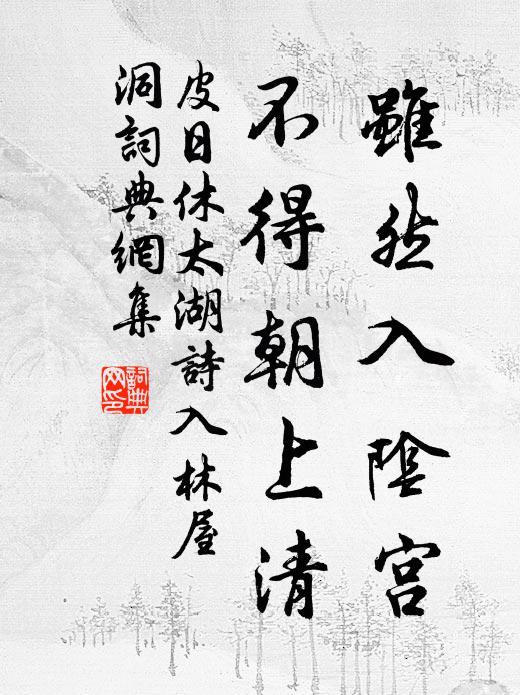 雖然入陰宮
不得朝上清
皮日休太湖詩入林屋
洞詞典網集
詞典
网印